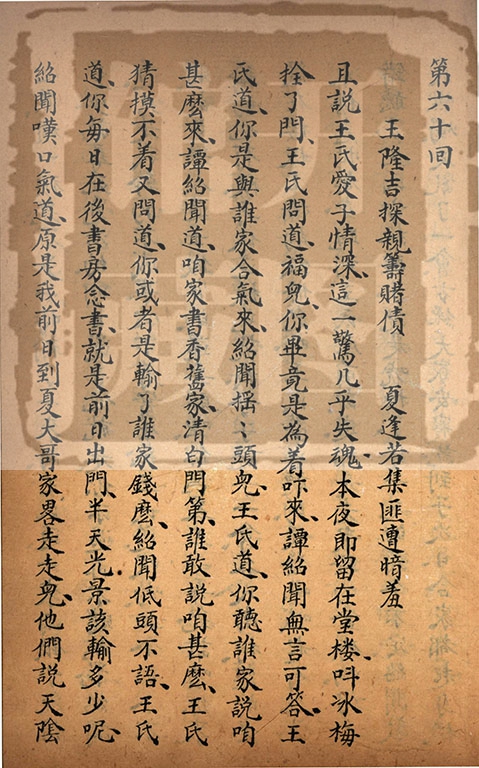 第六十回
王隆吉探親籌賭債　夏逢若集匪遭暗羞
且說王氏愛子情深、這一驚几乎失魂、本夜即留在堂楼、呌冰梅
拴了門、王氏問道、福皃、你畢竟是為着吘來、譚紹聞無言可答、王
氏道、你是與誰家合氣來、紹聞摇〻頭皃、王氏道、你聽誰家說咱
甚麽來、譚紹聞道、咱家書香舊家、清白門第、誰敢說咱甚麽、王氏
猜摸不着又問道、你或者是輸了誰家錢麽、紹聞低頭不語、王氏
道、你每日在後書房念書、就是前日出門、半天光景該輸多少呢、
紹聞嘆口氣道、原是我前日到夏大哥家畧走走皃、他們說天陰